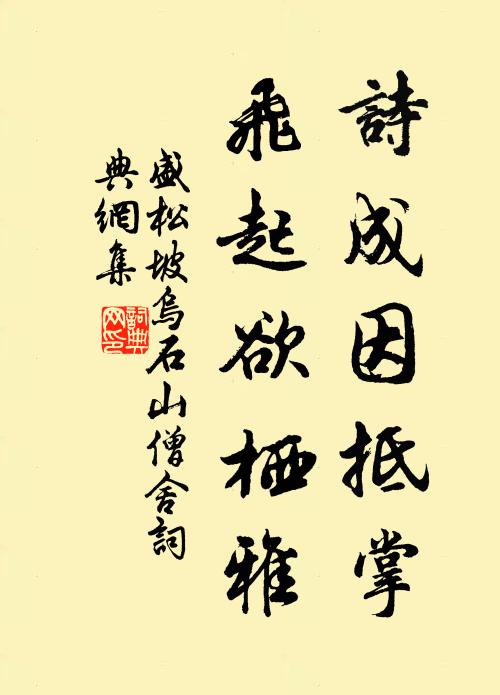 詩成因抵掌
飛起欲栖雅
盛松坡烏石山僧舍詞
典網集
詞典
网印